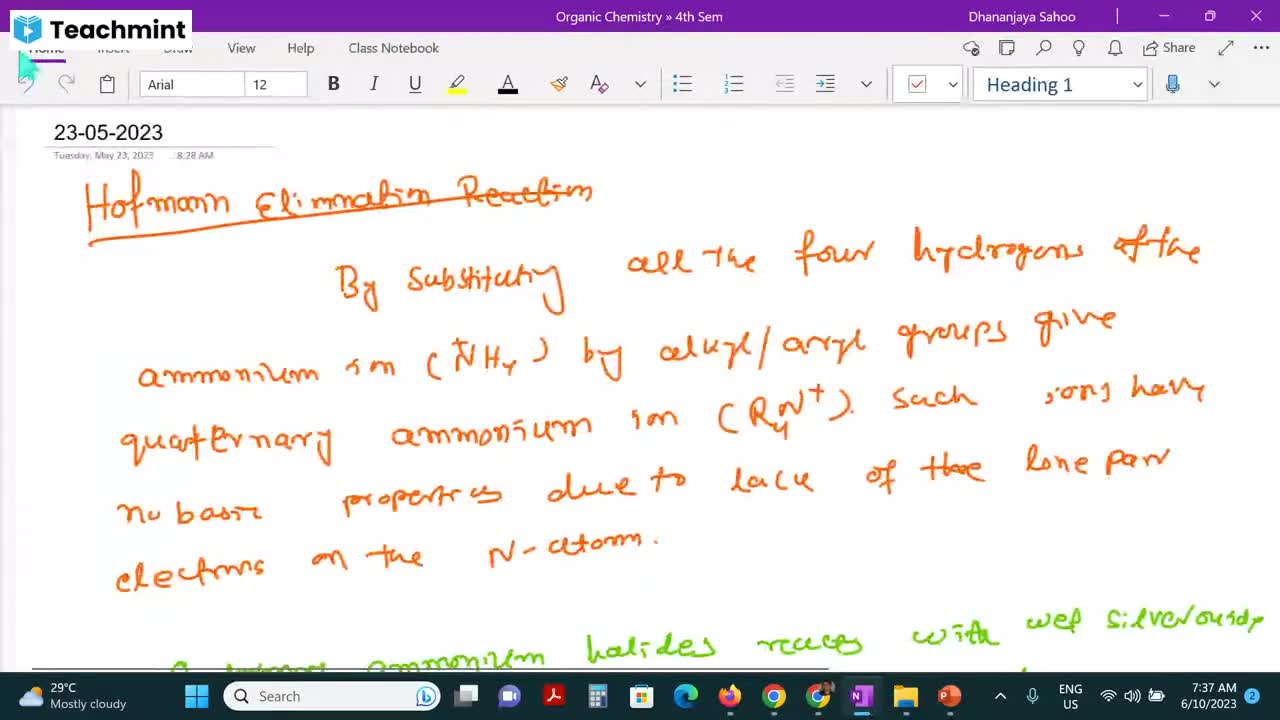 Organic Chemistry » 4th Sem
Dhananjaya Sahoo
Teachmint
Home Insert Draw View Help Class Notebook
Share
Arial
12
B I U
A
Heading 1
23-05-2023
Tuesday, May 23, 2023 8:28 AM
Hofmann Elimination Reaction
By Substituting all the four hydrogens of the
ammonium ion (N+H4) by alkyl/aryl groups give
quaternary ammonium ion (R4N+). Such ions have
no basic properties due to lack of the lone pair
electrons on the N-atom.
ammonium halides reacts with wet silveroxide
29°C
Mostly cloudy
Search
ENG
US
7:37 AM
6/10/2023
2